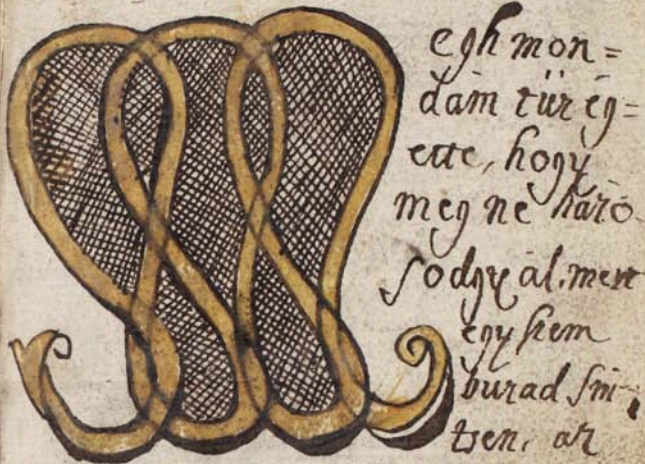 Megh mon=
dám tüz ég=
ette, hogy
meg ne házo
sodgyál. mert
egy szem
buzad sin-
tsen, az